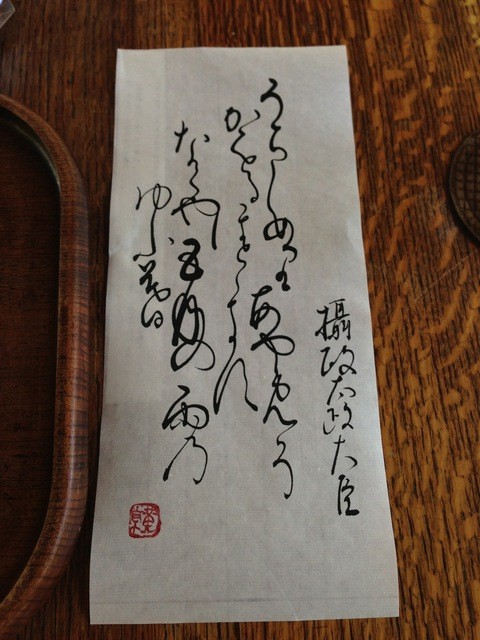 攝政太政大臣
うちしめりあやめそ
かをるほとゝきす
なくや五月の雨乃
ゆふ暮